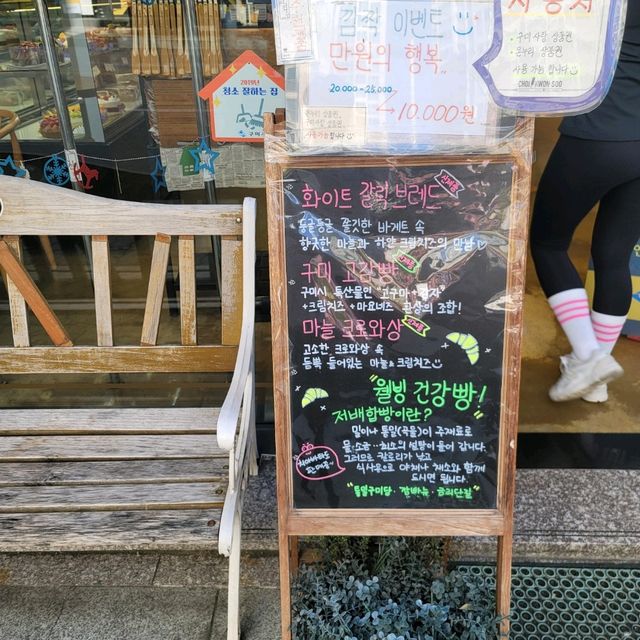 깜짝 이벤트
만원의 행복..
20.000-25.000
10.000원
사용가능 합니다
· 구미 사랑 상품권
· 온누리 상품권
사용 가능 합니다
CHOI JIWON SOO
2019년
청소 잘하는 집
구미시
화이트 갈릭 브레드
신제품
동글동글 쫄깃한 바게트 속
향긋한 마늘과 하얀 크림치즈의 만남
구미 고감빵
구미시 특산물인 "고구마+감자"
+크림치즈 +마요네즈 환상의 조합!
마늘 크로와상
고소한 크로와상 속
듬뿍 들어있는 마늘&크림치즈
"웰빙 건강빵!
저배합빵이란?"
밀이나 통밀(곡물)이 주재료로
물·소금···최소의 설탕이 들어 갑니다.
그러므로 칼로리가 낮고
식사용으로 야채나 채소와 함께
드시면 됩니다.
치아바타도
판매중~
"통밀구미당·깜빠뉴·금리단길"